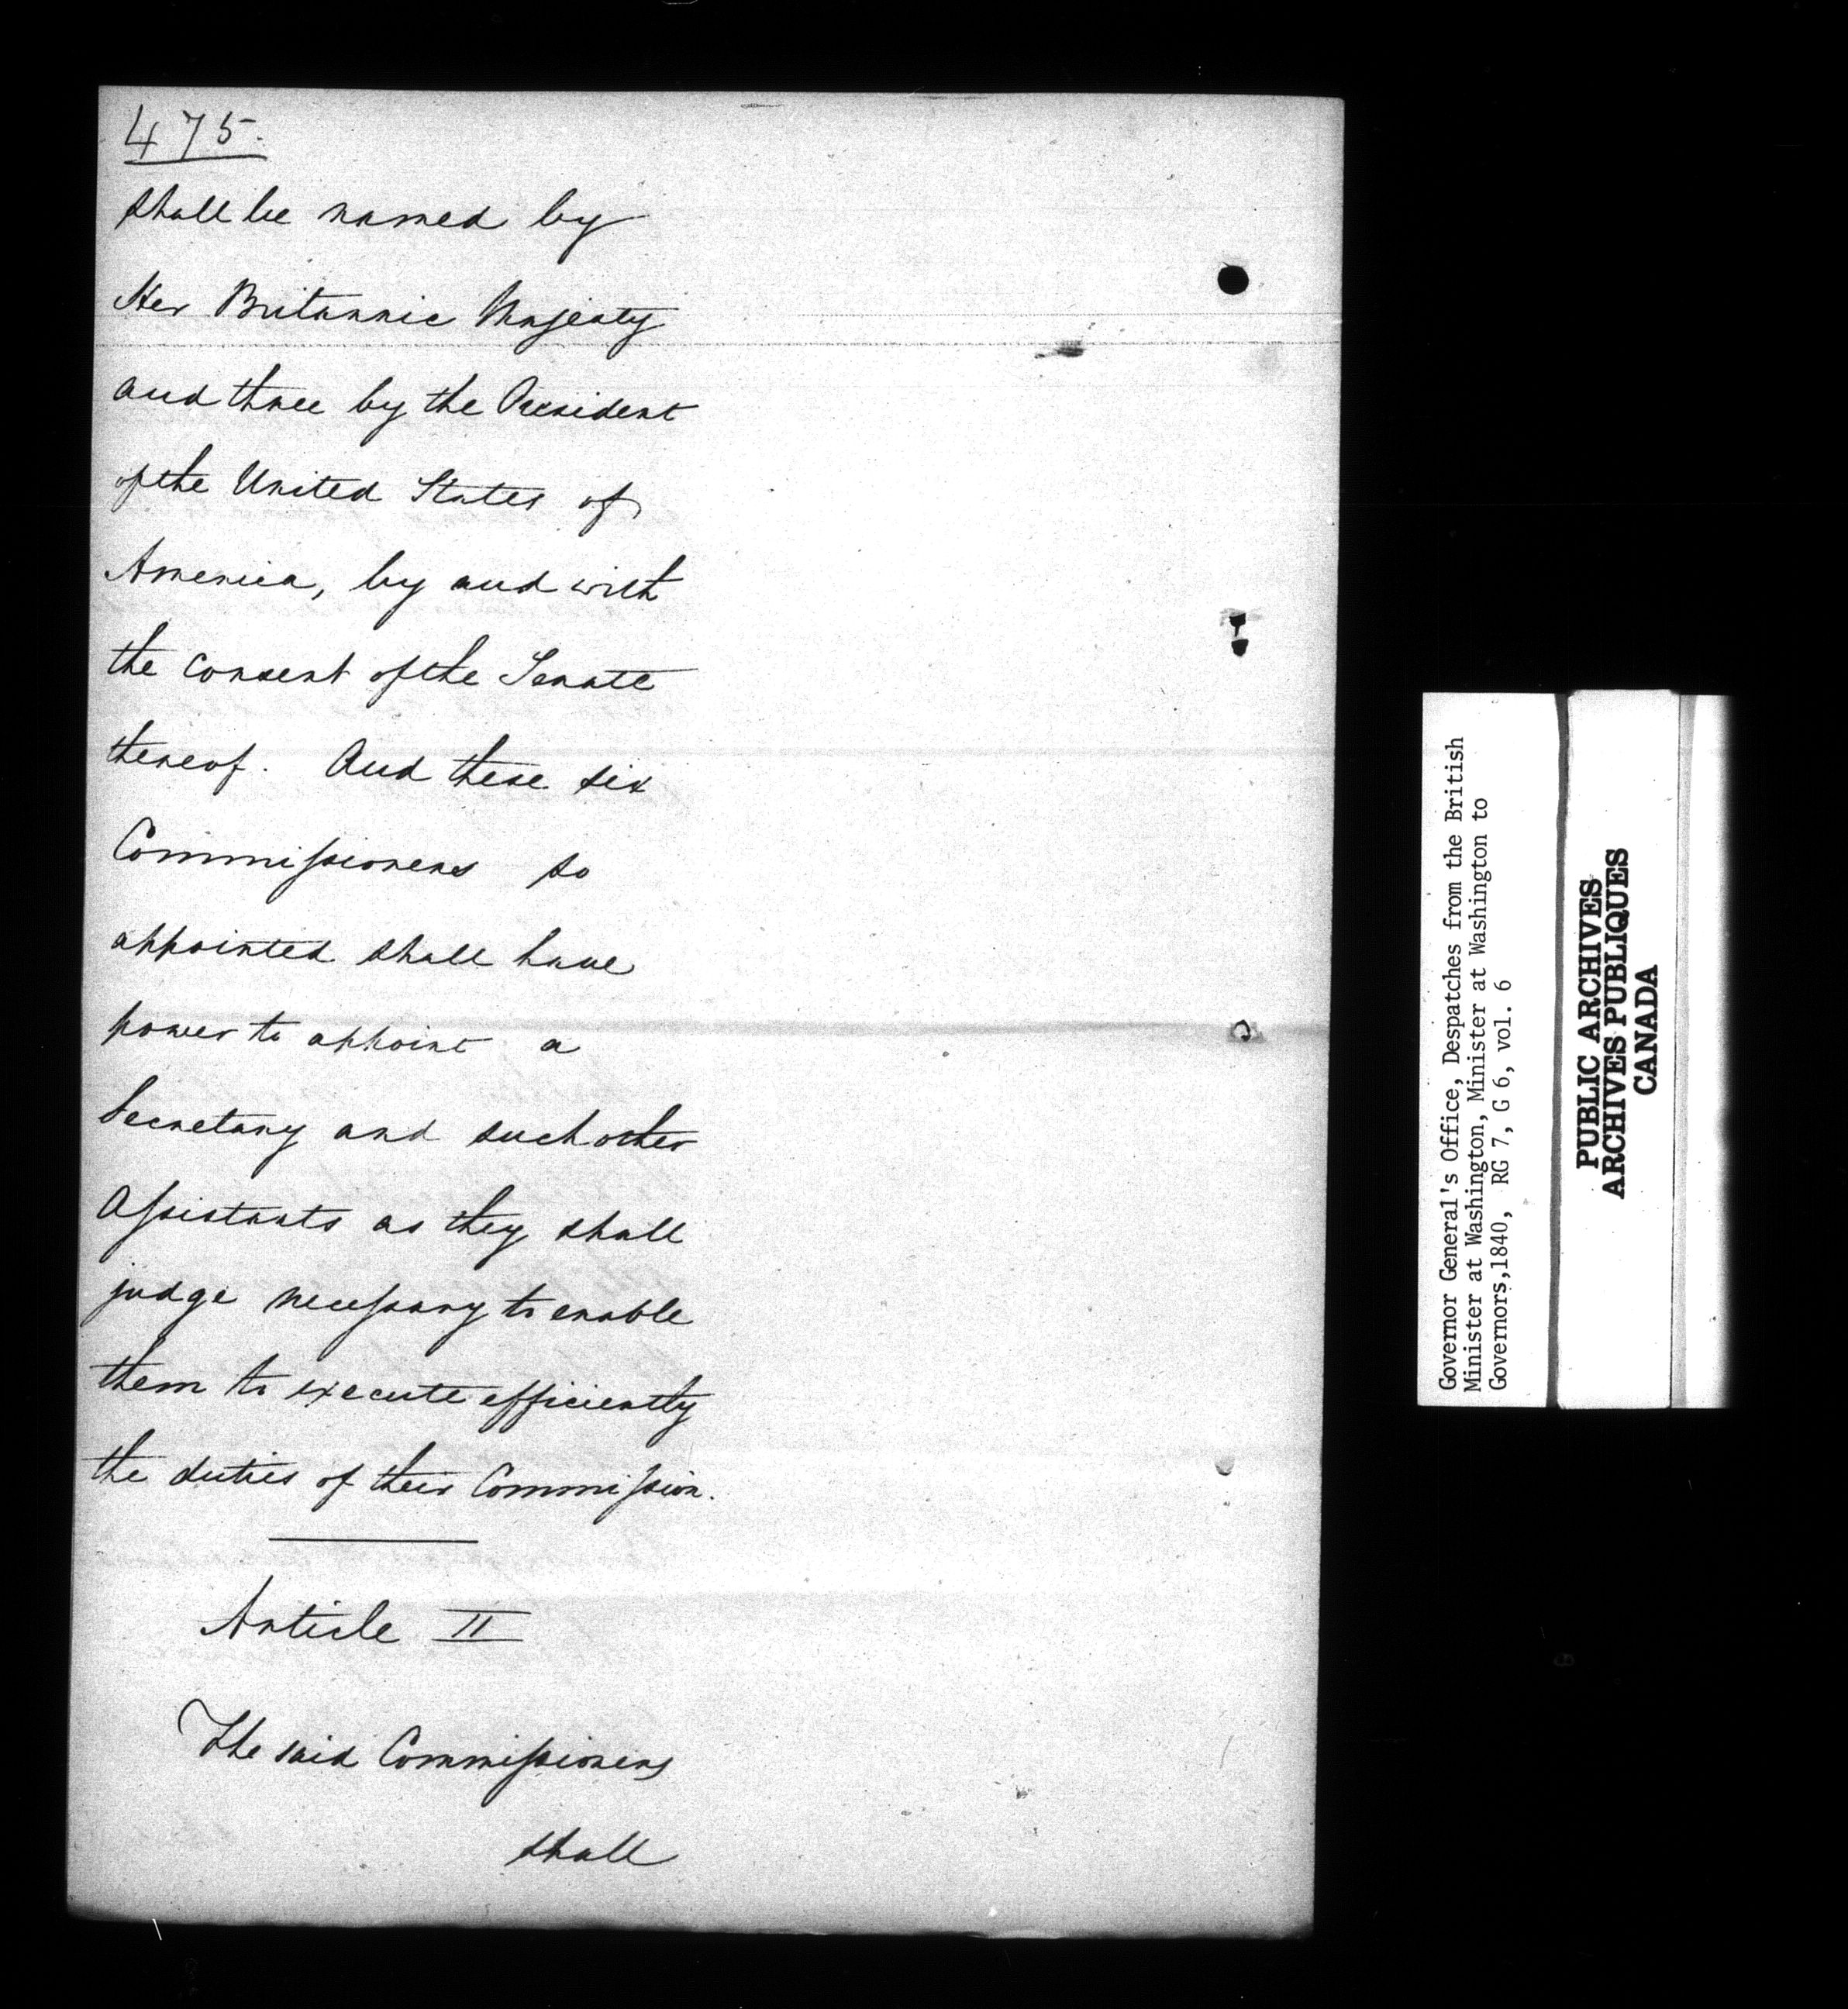 475.
shall be named by
Her Britannic Majesty
and three by the President
of the United States of
America, by and with
the consent of the Senate
thereof. And these six
Commiſsioners so
appointed shall have
power to appoint a
Secretary and such other
Aſsistants as they shall
judge neceſsary to enable
them to execute efficiently
the duties of their Commiſsion.
Article II
The said Commiſsioners
shall
Governor General's Office, Despatches from the British
Minister at Washington, Minister at Washington to
Governors,1840, RG 7, G 6, vol. 6
PUBLIC ARCHIVES
ARCHIVES PUBLIQUES
CANADA